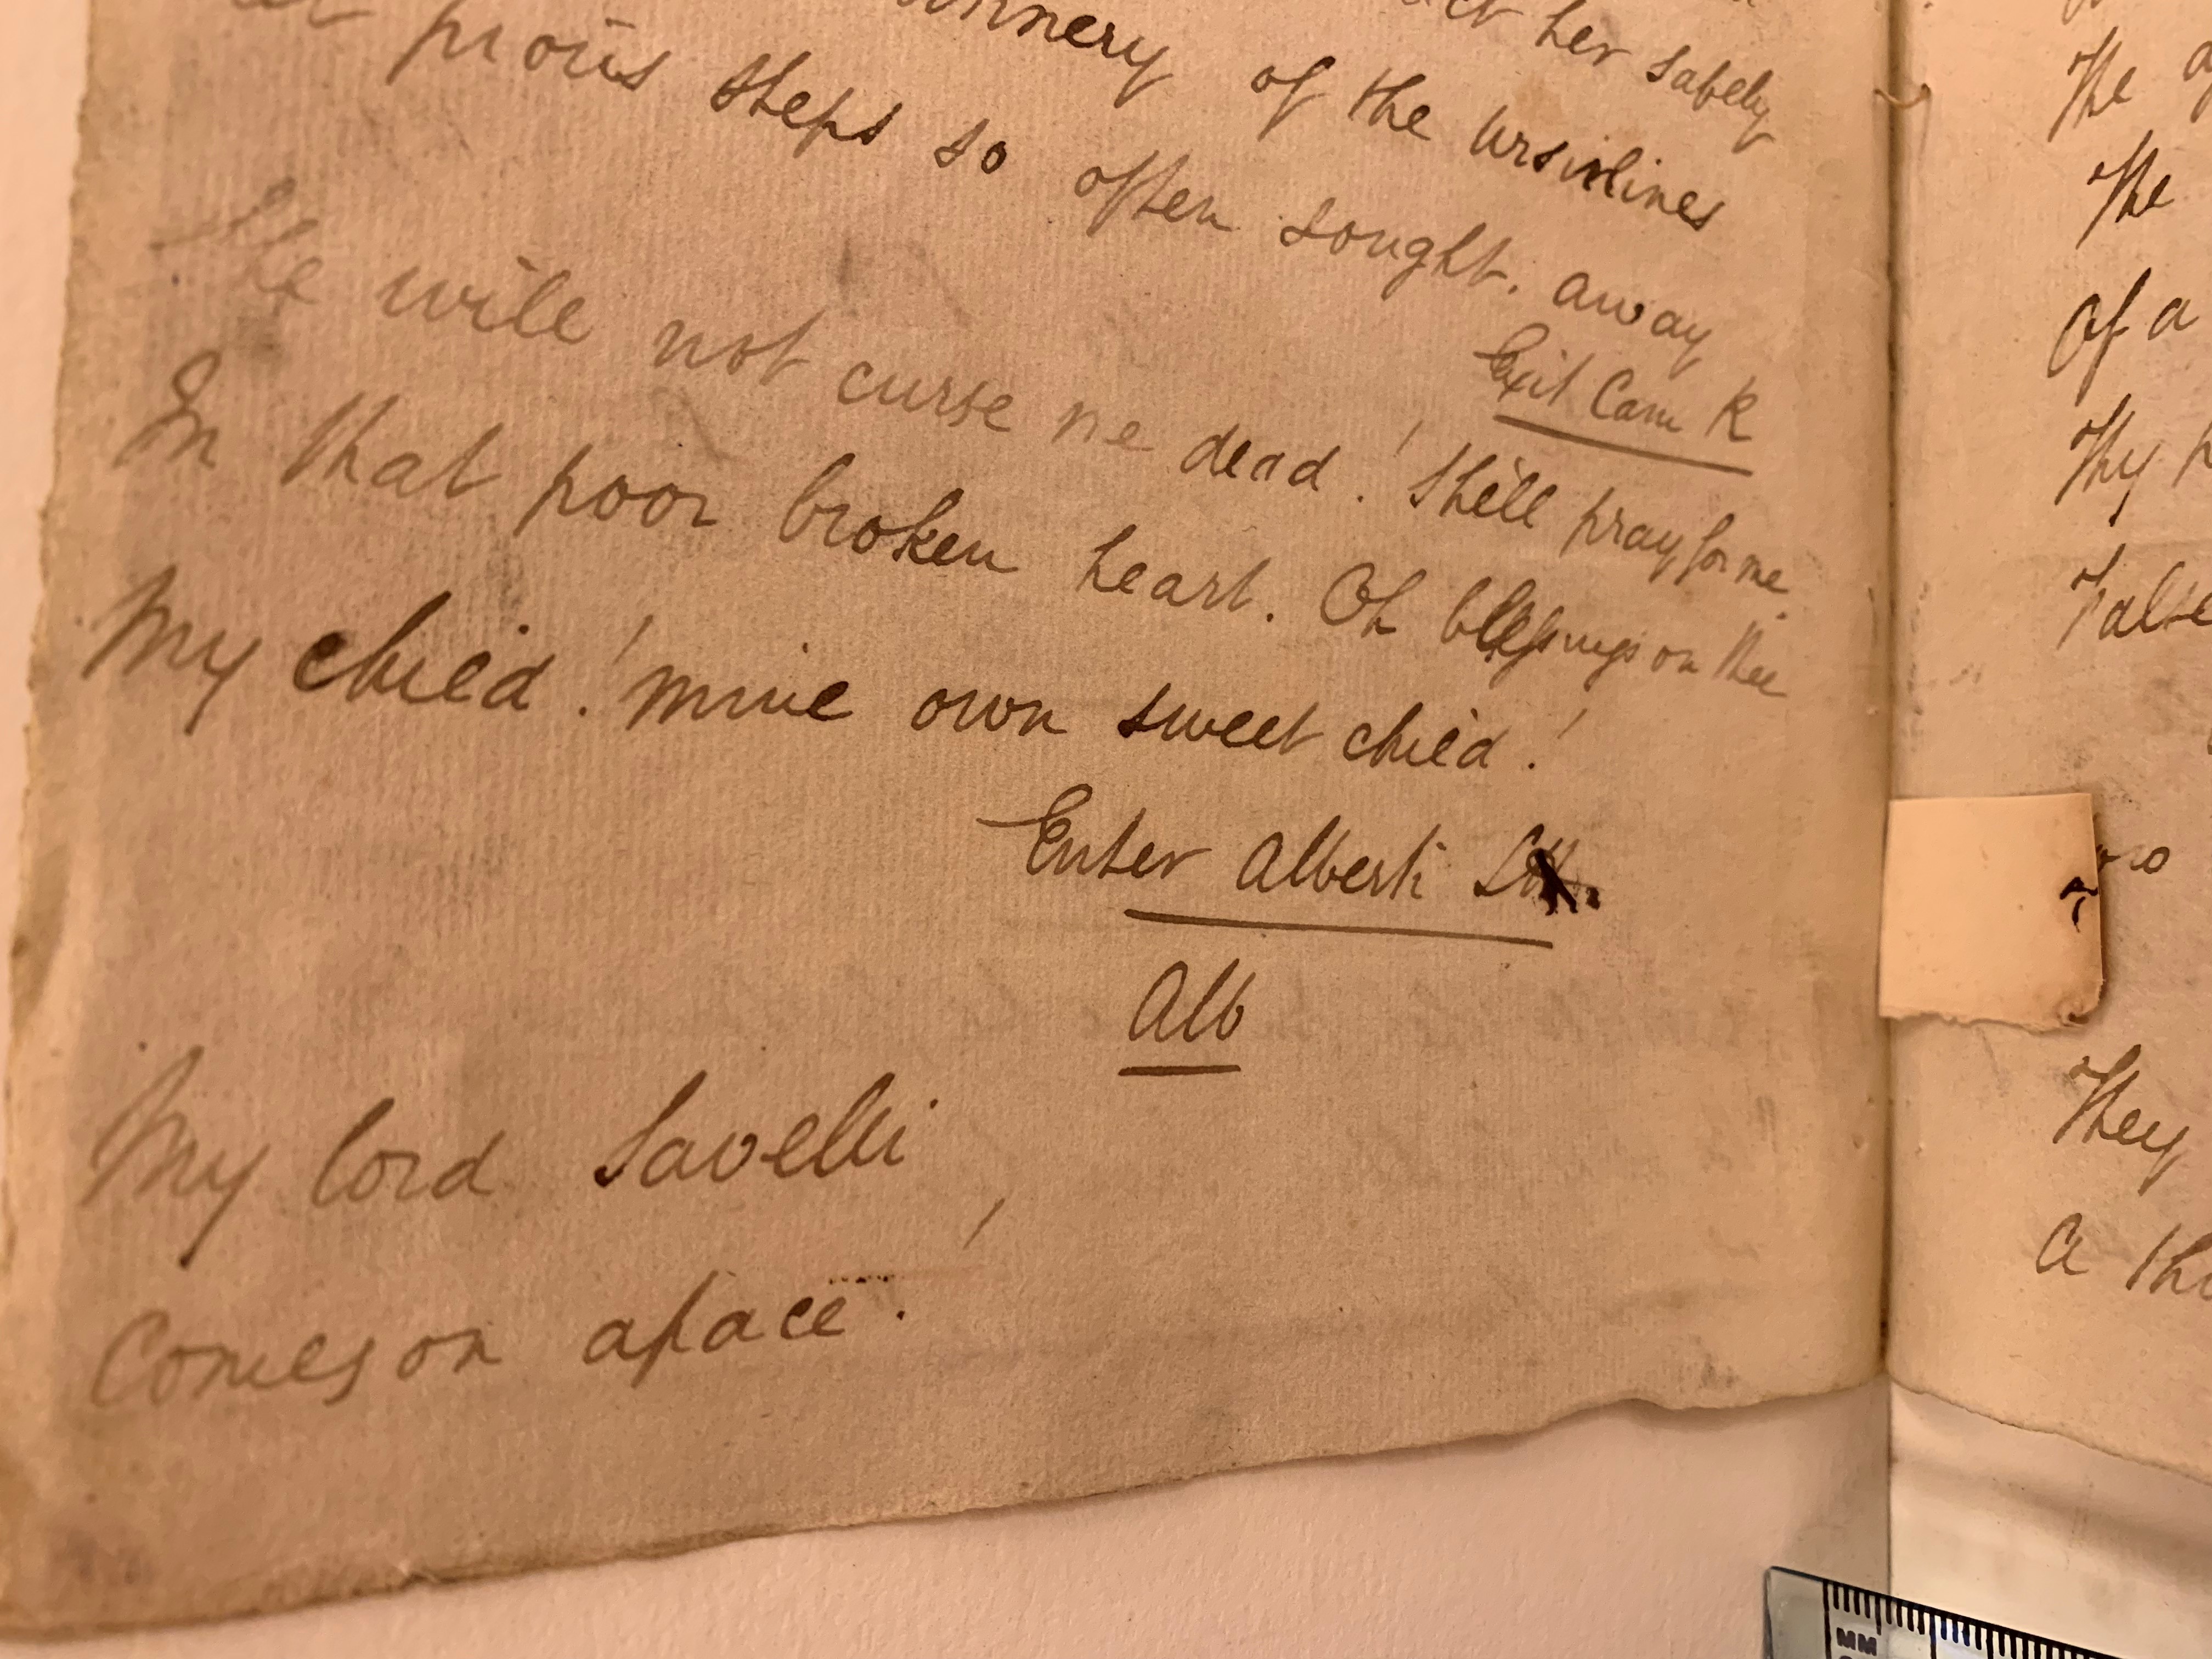 her safely
of the Ursulines
pious steps so often sought. away
Exit Cam R
She will not curse me dead! She'll pray for me.
In that poor broken heart. Oh blessings on thee
My child! mine own sweet child!
Enter Alberti
Alb
My lord Savelli,
Comes on apace.
The
The
Of a
Thy
False
They
A
MM